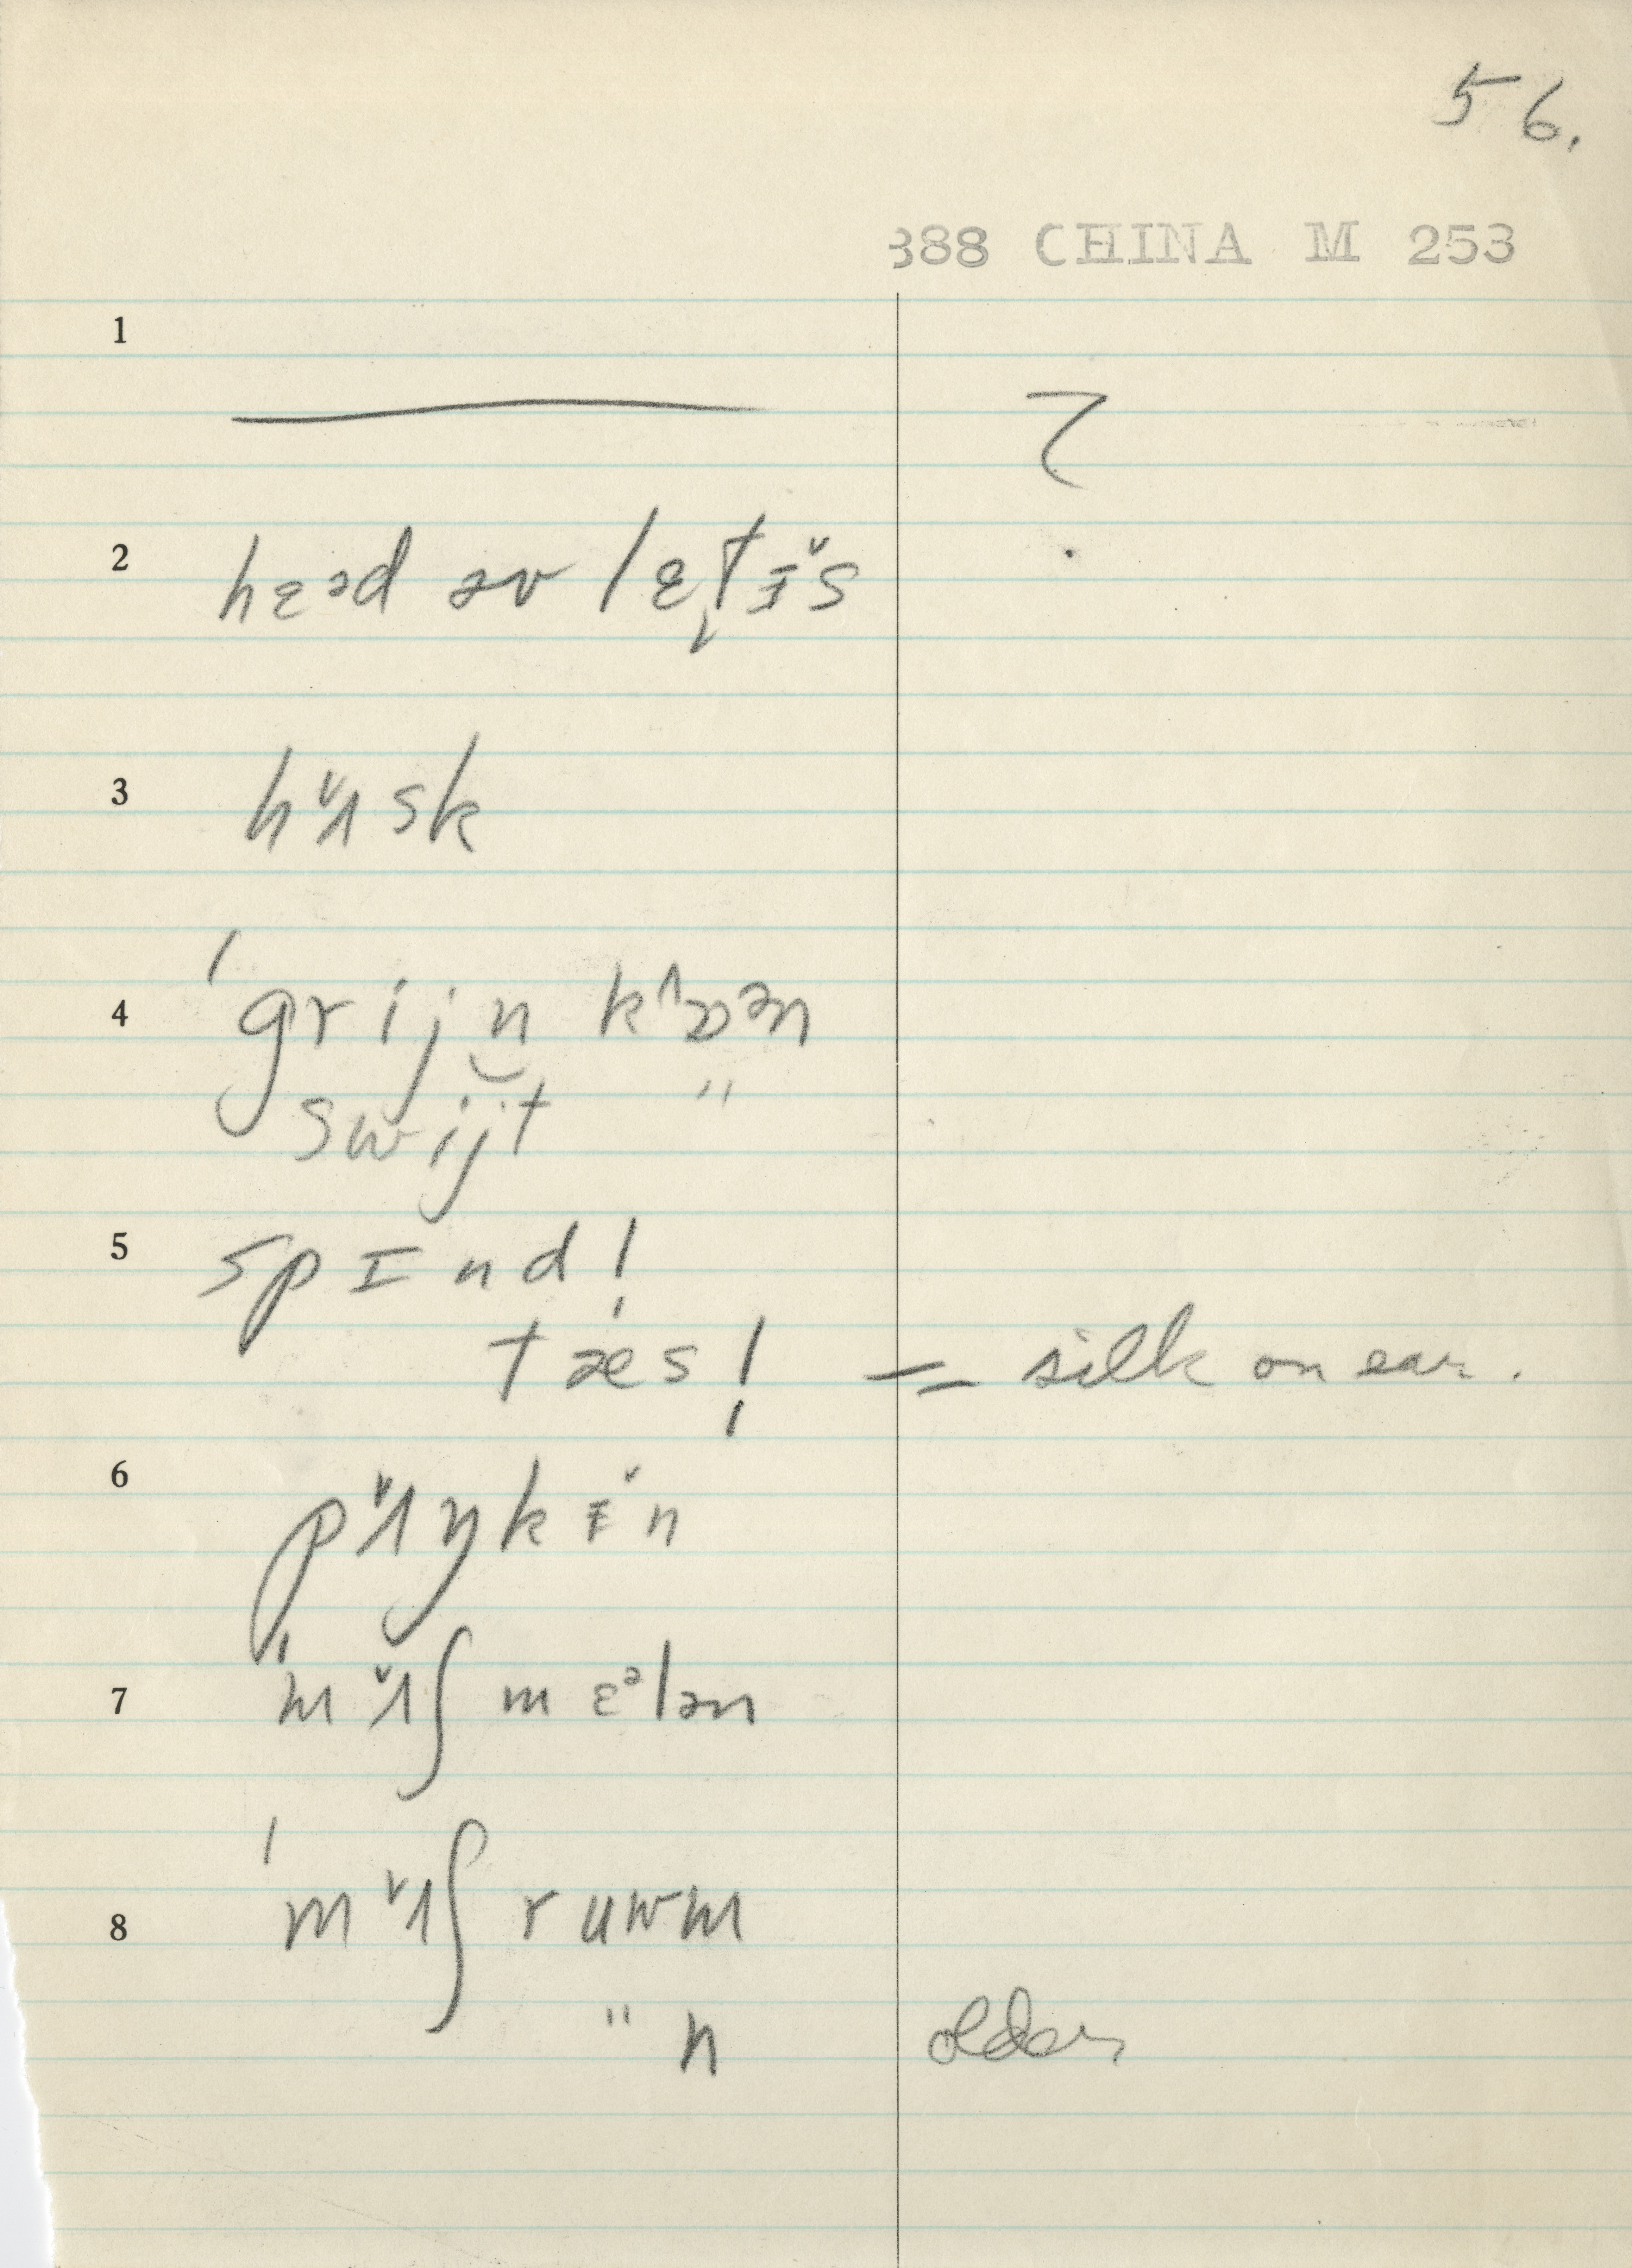 56.
388 CHINA M 253
1 ——— ?
2 hɛəd əv lɛt̬ᵻ̌s
3 hʌ̌sk
4 ˈgrijn kɒ^ən
swijt "
5 spɪndl̩
tæsl̩ = silk on ear.
6 pʌ̌ŋkᵻ̌n
7 ˈmʌ̌ʃmɛᵊlən
8 ˈmʌ̌ʃruwm
" n older